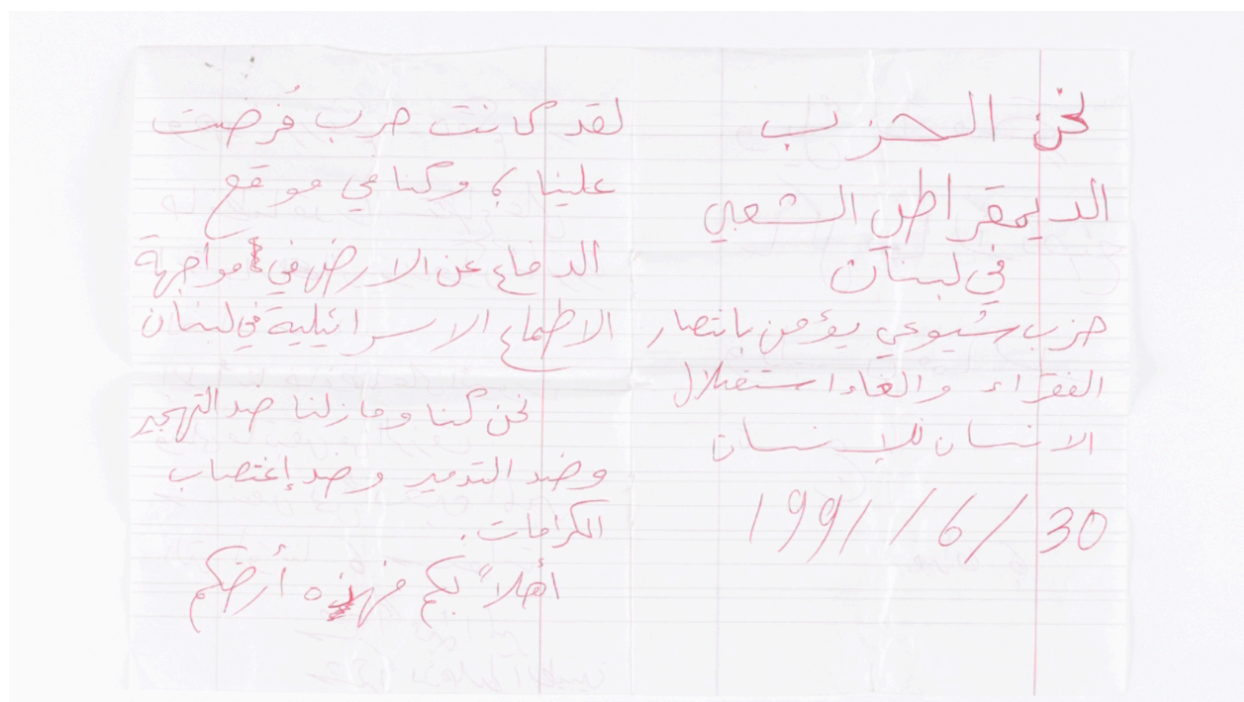 نحن الحزب
الديمقراطي الشعبي
في لبنان
حزب شيوعي يؤمن بانتصار
الفقراء والغاء استغلال
الانسان للإنسان
30/6/1991
لقد كانت حرب فُرضت
علينا، وكنا في موقع
الدفاع عن الارض في مواجهة
الاطماع الاسرائيلية في لبنان
نحن كنا وما زلنا ضد التهجير
وضد التدمير وضد إغتصاب
الكرامات.
أهلاً بكم فهذه أرضكم